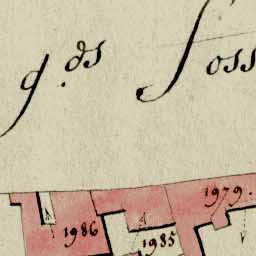 g.ds Foss
1979.
1986
1985